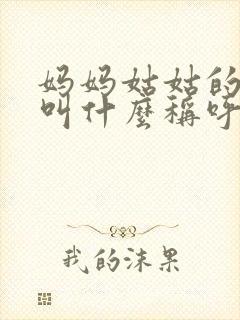 妈妈姑姑的
叫什麼稱呼
我的沫果